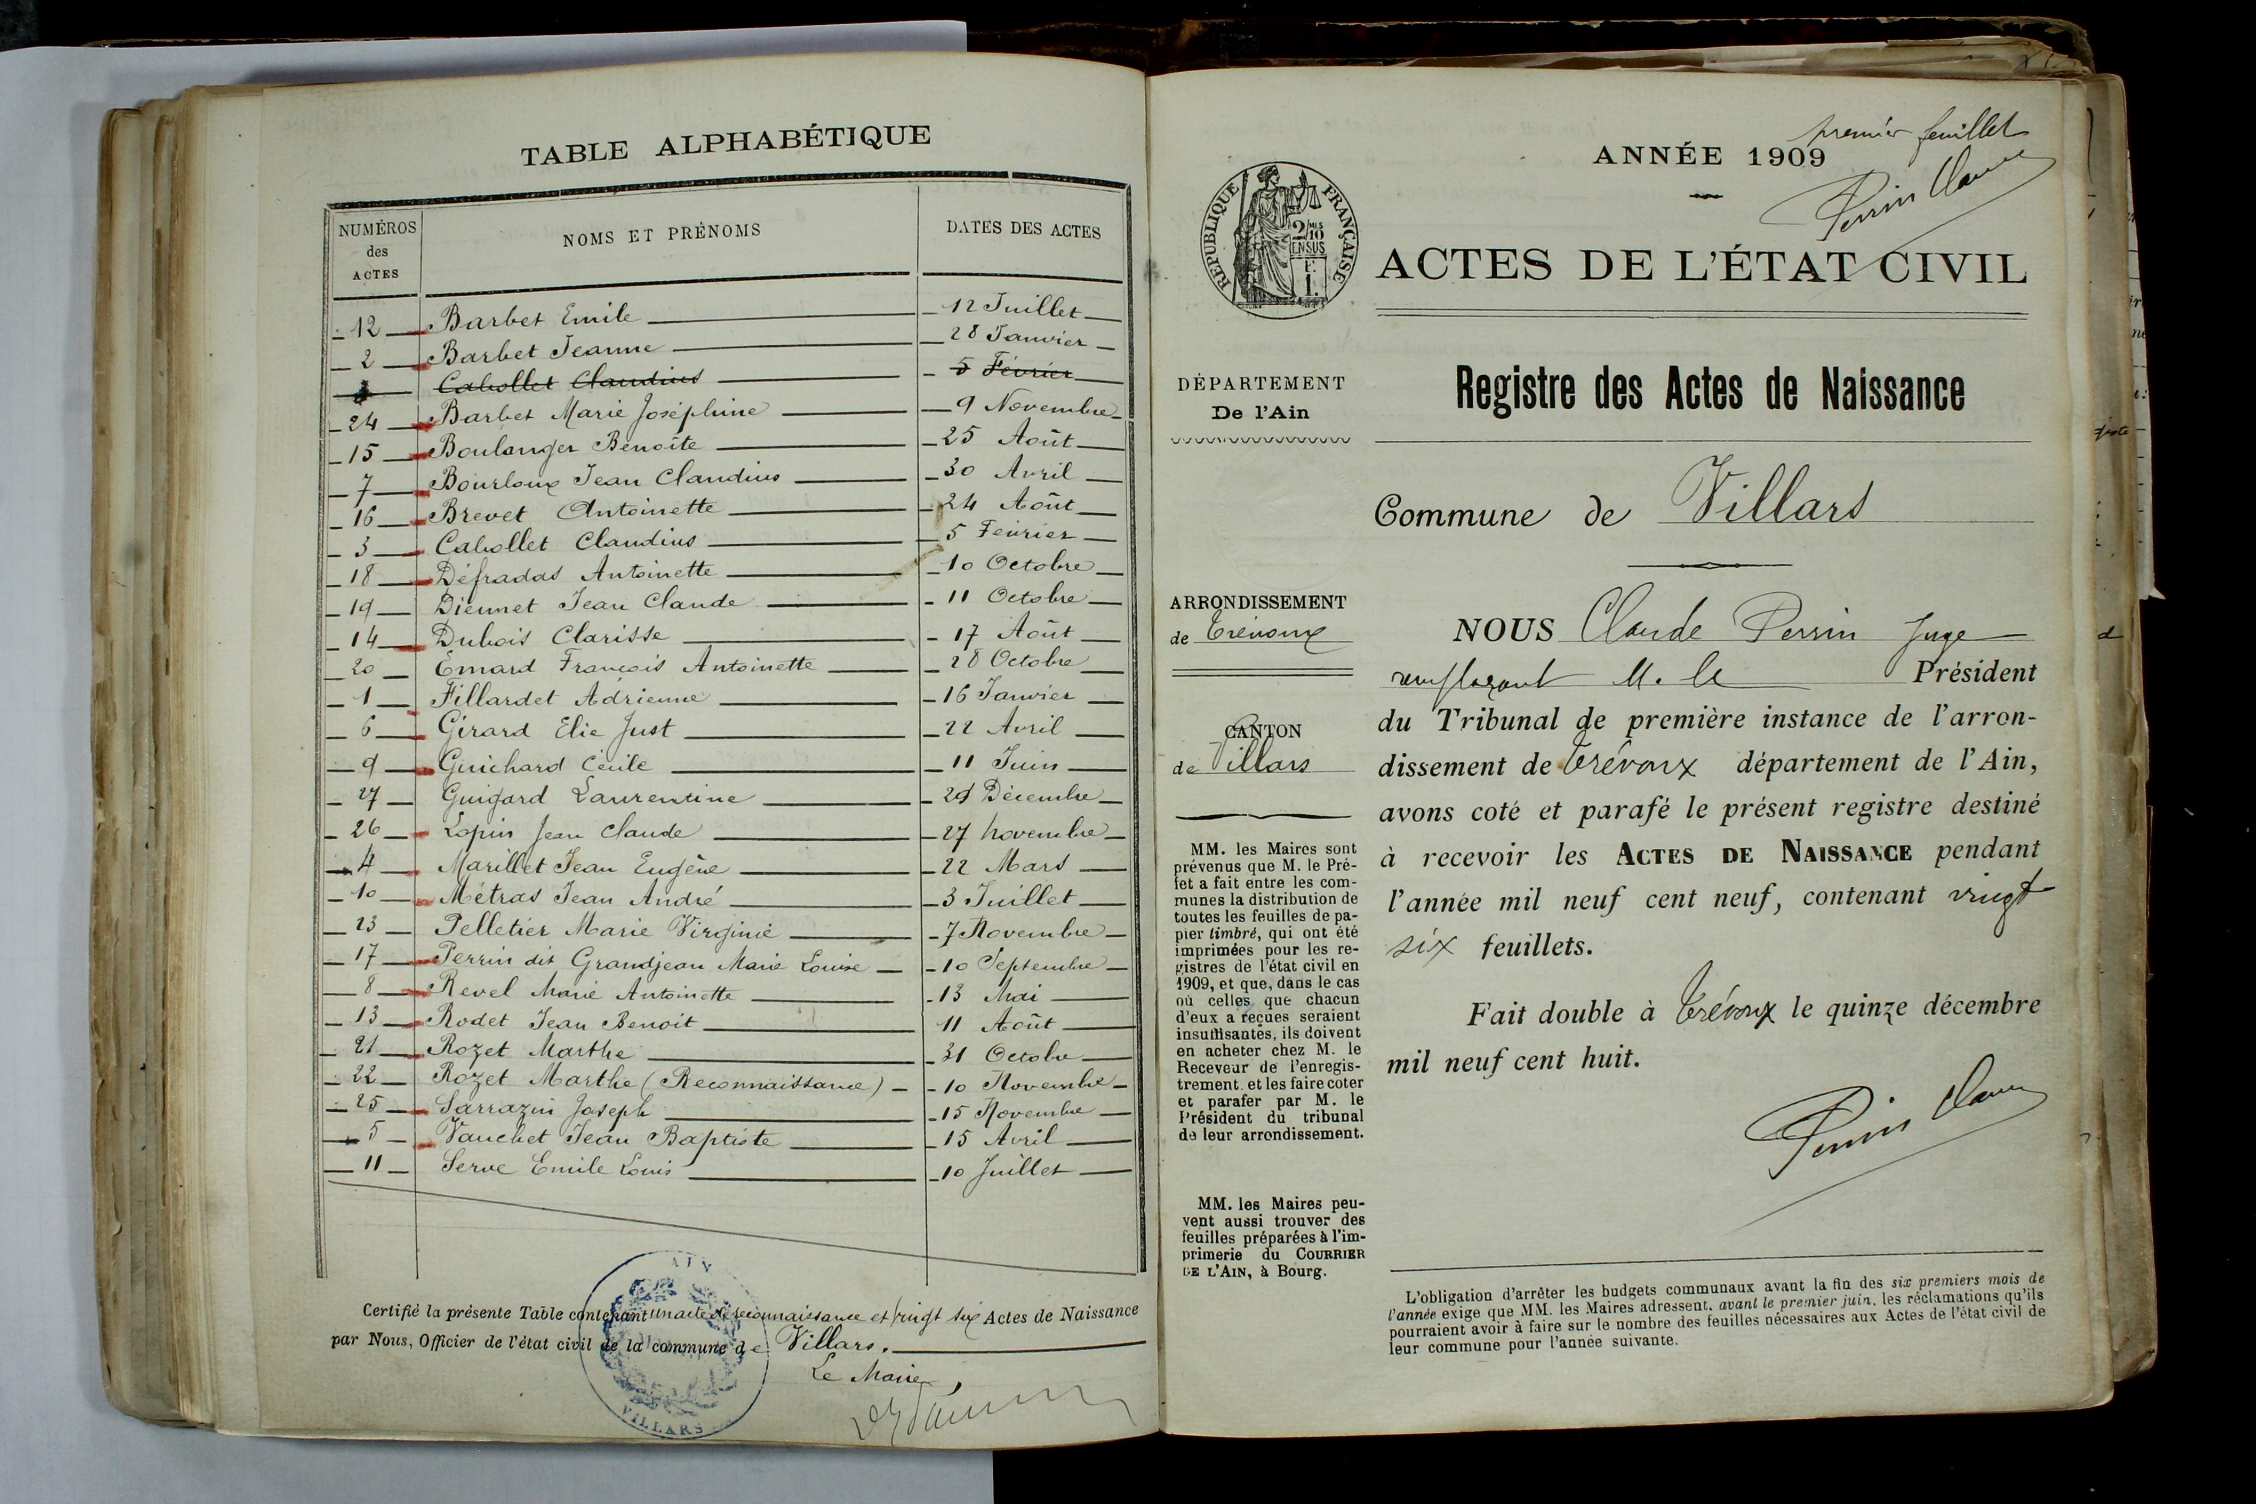 TABLE ALPHABÉTIQUE
NUMÉROS des ACTES
NOMS ET PRÉNOMS
DATES DES ACTES
12 Barbet Emile 12 Juillet
2 Barbet Jeanne 28 Janvier
3 Cabollet Claudius 5 Février
24 Barbet Marie Joséphine 9 Novembre
15 Boulanger Benoîte 25 Août
7 Bourloux Jean Claudius 30 Avril
16 Brevet Antoinette 24 Août
3 Cabollet Claudius 5 Février
18 Défradas Antoinette 10 Octobre
19 Diennet Jean Claude 11 Octobre
14 Dubois Clarisse 17 Août
20 Emard François Antoinette 28 Octobre
1 Fillardet Adrienne 16 Janvier
6 Girard Elie Just 22 Avril
9 Guichard Cécile 11 Juin
27 Guigard Laurentine 29 Décembre
26 Lopin Jean Claude 27 Novembre
4 Marillet Jean Eugène 22 Mars
10 Métras Jean André 3 Juillet
23 Pelletier Marie Virginie 7 Novembre
17 Perrin dit Grandjean Marie Louise 10 Septembre
8 Revel Marie Antoinette 13 Mai
13 Rodet Jean Benoit 11 Août
21 Rozet Marthe 31 Octobre
22 Rozet Marthe (Reconnaissance) 10 Novembre
25 Sarrazin Joseph 15 Novembre
5 Vauchet Jean Baptiste 15 Avril
11 Serve Emile Louis 10 Juillet
Certifié la présente Table contenant un acte de reconnaissance et vingt six Actes de Naissance
par Nous, Officier de l'état civil de la commune de Villars.
Le Maire,
AIN
VILLARS
premier feuillet
ANNÉE 1909
Perrin Claude
RÉPUBLIQUE FRANÇAISE
2/10 EN SUS
ACTES DE L'ÉTAT CIVIL
DÉPARTEMENT
De l'Ain
Registre des Actes de Naissance
Commune de Villars
ARRONDISSEMENT
de Trévoux
CANTON
de Villars
MM. les Maires sont
prévenus que M. le Pré-
fet a fait entre les com-
munes la distribution de
toutes les feuilles de pa-
pier timbré, qui ont été
imprimées pour les re-
gistres de l'état civil en
1909, et que, dans le cas
où celles que chacun
d'eux a reçues seraient
insuffisantes, ils doivent
en acheter chez M. le
Receveur de l'enregis-
trement et les faire coter
et parafer par M. le
Président du tribunal
de leur arrondissement.
MM. les Maires peu-
vent aussi trouver des
feuilles préparées à l'im-
primerie du COURRIER
DE L'AIN, à Bourg.
NOUS Claude Perrin Juge
remplaçant M. le Président
du Tribunal de première instance de l'arron-
dissement de Trévoux département de l'Ain,
avons coté et parafé le présent registre destiné
à recevoir les ACTES DE NAISSANCE pendant
l'année mil neuf cent neuf, contenant vingt
six feuillets.
Fait double à Trévoux le quinze décembre
mil neuf cent huit.
Perrin Claude
L'obligation d'arrêter les budgets communaux avant la fin des six premiers mois de
l'année exige que MM. les Maires adressent, avant le premier juin, les réclamations qu'ils
pourraient avoir à faire sur le nombre des feuilles nécessaires aux Actes de l'état civil de
leur commune pour l'année suivante.